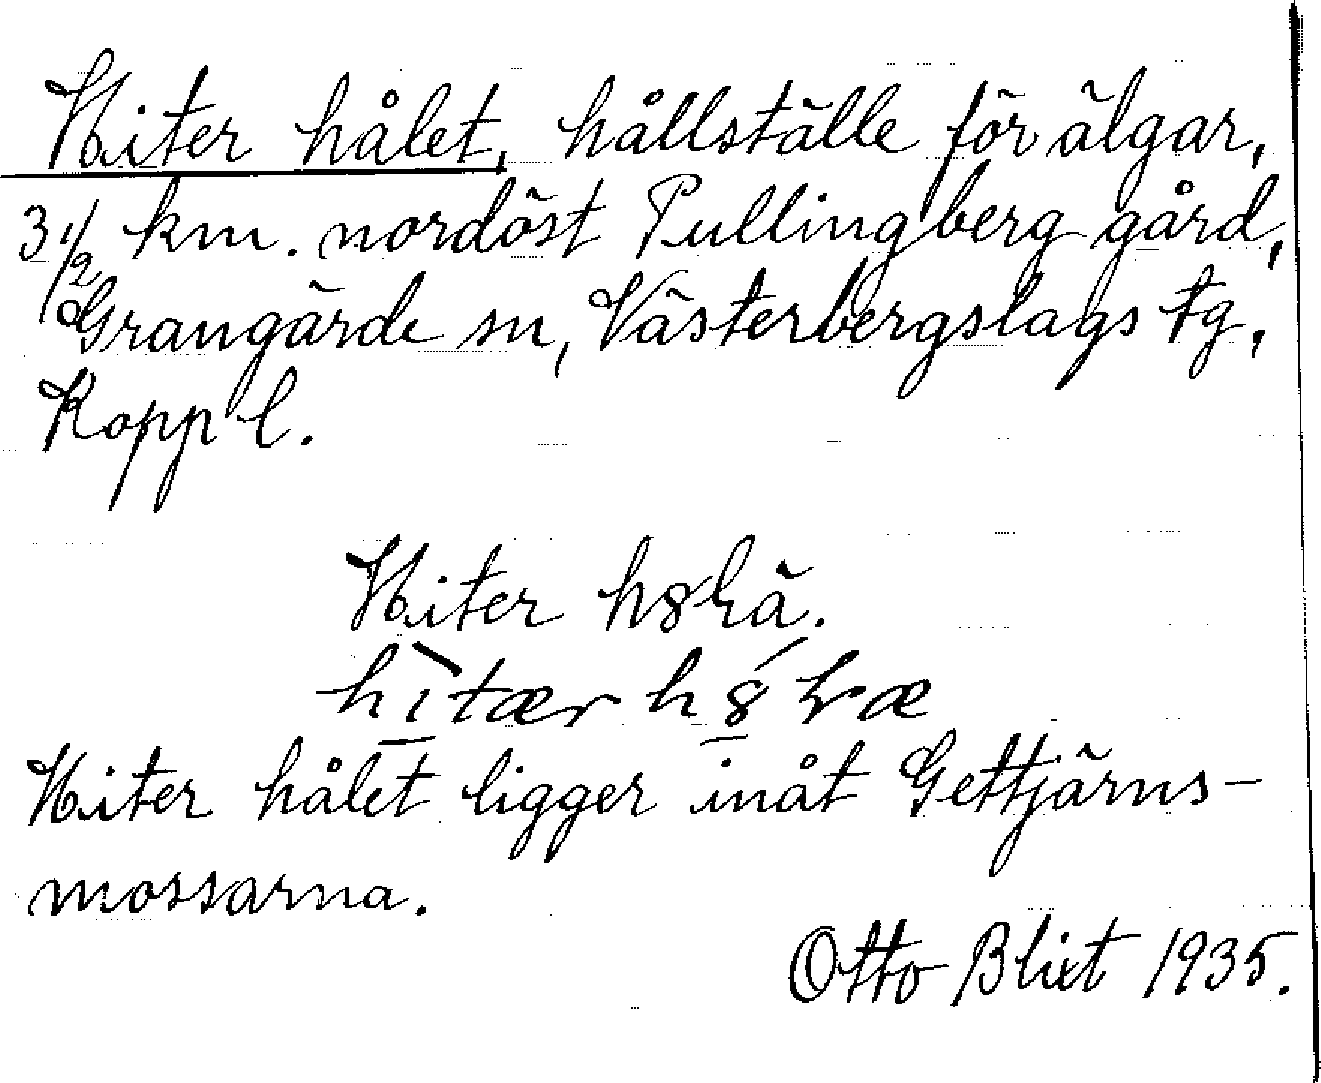 Hiter hålet, hållställe för älgar,
3 1/2 km. nordöst Pullingberg gård,
Grangärde sn, Västerbergslags tg,
Kopp l.
Hiter
hìtær
Hiter hålet ligger inåt Gettjärns-
mossarna.
Otto Blixt 1935.